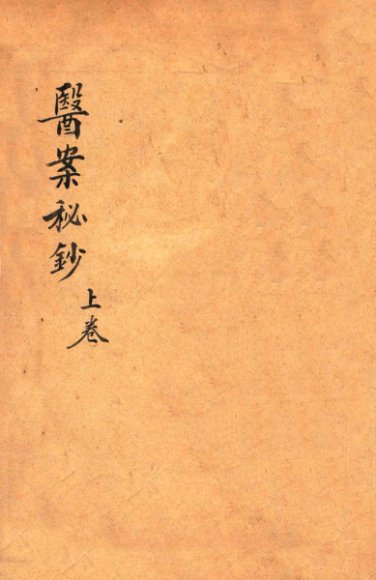 醫案秘鈔
上卷